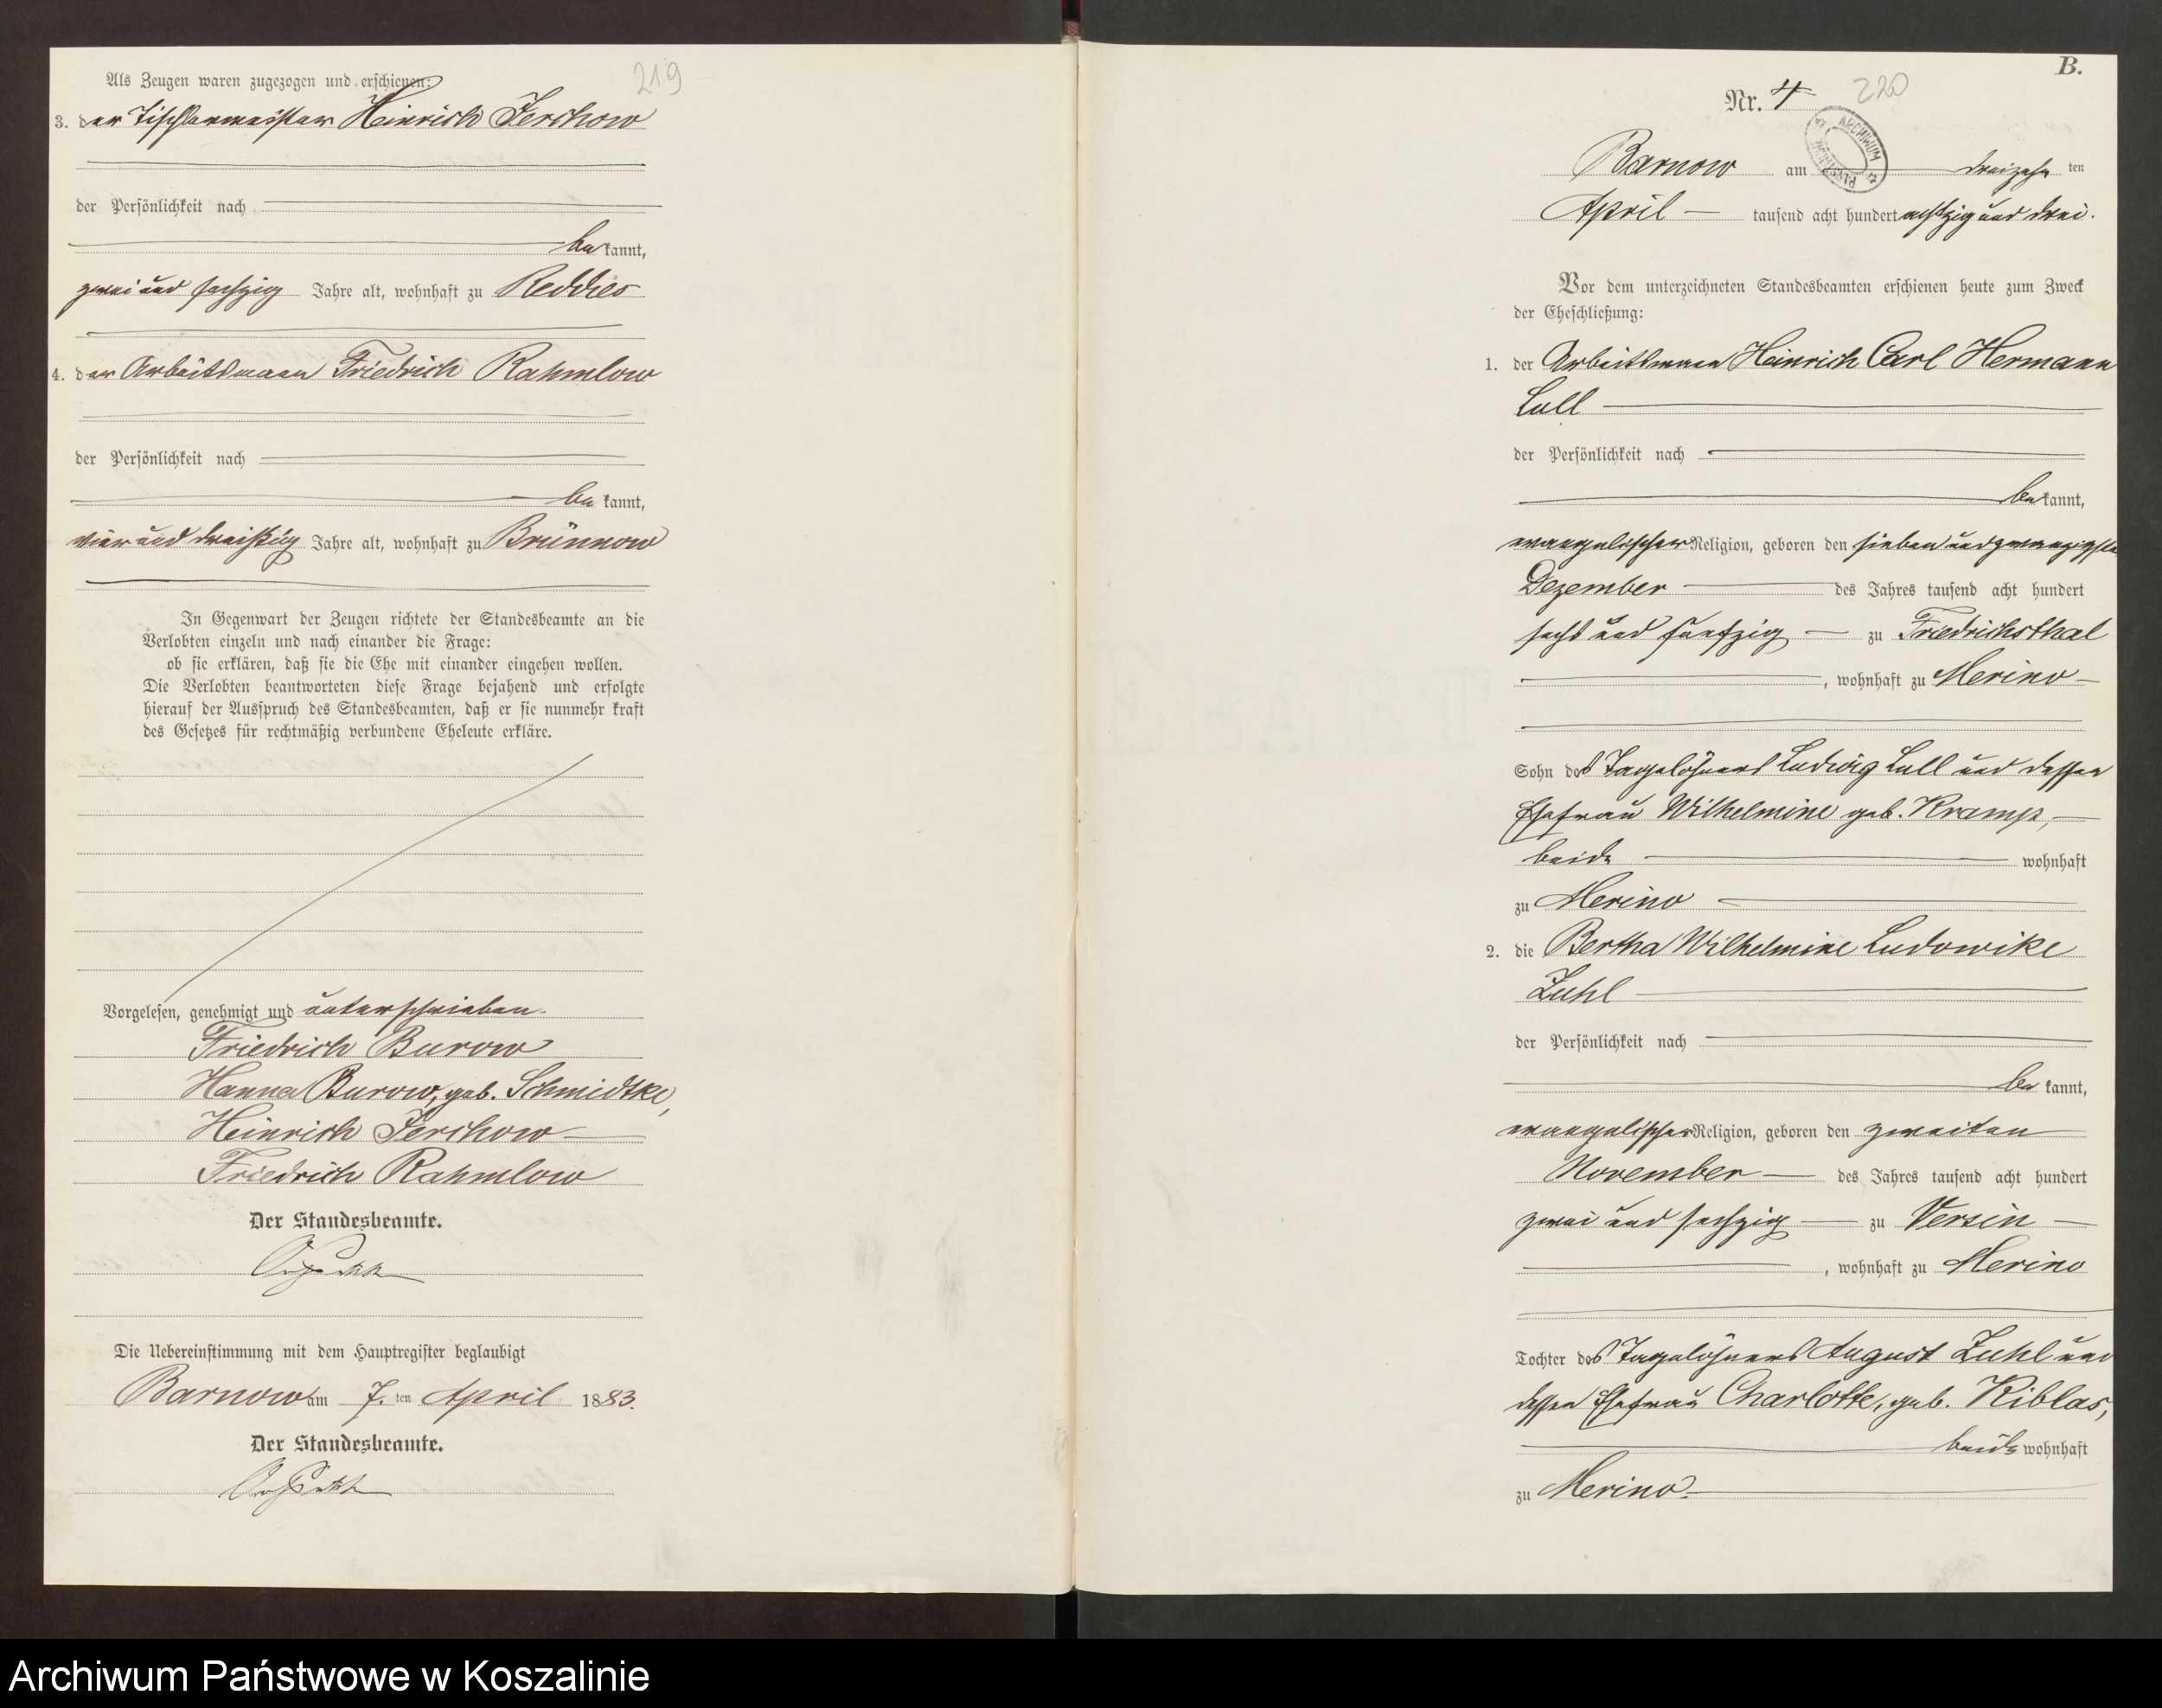 219
Als Zeugen waren zugezogen und erschienen:
3. der Tischlermeister Heinrich Jerchow
der Persönlichkeit nach
bekannt,
zwei und sechzig Jahre alt, wohnhaft zu Reddies
4. der Arbeitsmann Friedrich Rahmlow
der Persönlichkeit nach
be kannt,
vier und dreißig Jahre alt, wohnhaft zu Brünnow
In Gegenwart der Zeugen richtete der Standesbeamte an die
Verlobten einzeln und nach einander die Frage:
ob sie erklären, daß sie die Ehe mit einander eingehen wollen.
Die Verlobten beantworteten diese Frage bejahend und erfolgte
hierauf der Ausspruch des Standesbeamten, daß er sie nunmehr kraft
des Gesetzes für rechtmäßig verbundene Eheleute erkläre.
Vorgelesen, genehmigt und unterschrieben.
Friedrich Burow
Hanna Burow, geb. Schmidtke,
Heinrich Jerchow
Friedrich Rahmlow
Der Standesbeamte.
Die Uebereinstimmung mit dem Hauptregister beglaubigt
Barnow am 7. ten April 1883.
Der Standesbeamte.
B.
Nr. 4 220
Barnow am dreizehn ten
April tausend acht hundert achtzig und drei.
Vor dem unterzeichneten Standesbeamten erschienen heute zum Zweck
der Eheschließung:
1. der Arbeitsmann Heinrich Carl Hermann
Lull
der Persönlichkeit nach
bekannt,
evangelischer Religion, geboren den sieben und zwanzigsten
Dezember des Jahres tausend acht hundert
sechs und fünfzig zu Friedrichsthal
, wohnhaft zu Merino
Sohn des Tagelöhners Ludwig Lull und dessen
Ehefrau Wilhelmine geb. Kramp,
beide wohnhaft
zu Merino
2. die Bertha Wilhelmine Ludowike
Zuhl
der Persönlichkeit nach
be kannt,
evangelischer Religion, geboren den zweiten
November des Jahres tausend acht hundert
zwei und sechzig zu Versin
, wohnhaft zu Merino
Tochter des Tagelöhners August Zuhl und
dessen Ehefrau Charlotte, geb. Kiblas,
beide wohnhaft
zu Merino.
Archiwum Państwowe w Koszalinie